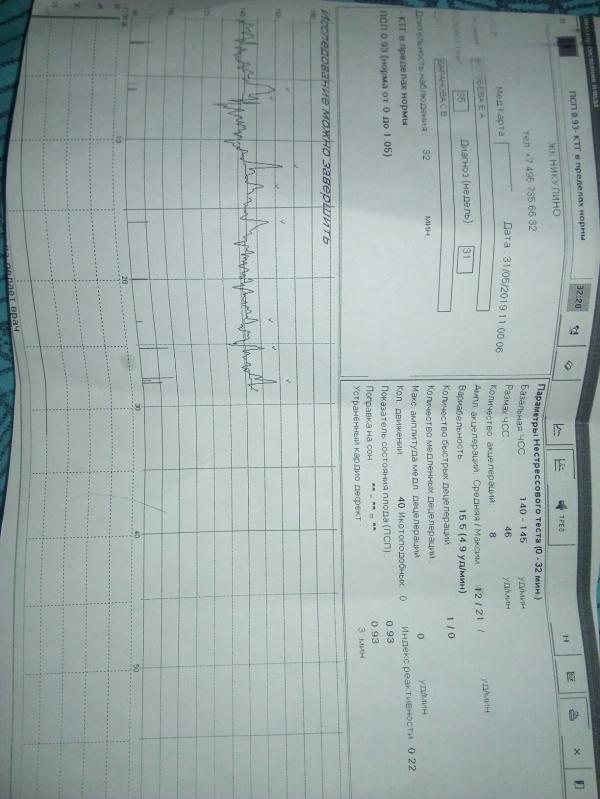 ПСП 0.93- КТГ в пределах нормы
32:20
ТРЕВ
Н
ЖК НИКУЛИНО
тел. +7 495 735 66 32
Мед.карта
Дата : 31/05/2019 11:00:06
Диагноз (недель): 31
БАРАНОВА С В
Длительность наблюдения : 32 мин.
КТГ в пределах нормы
ПСП 0.93 (норма от 0 до 1.05)
Параметры Нестрессового теста (0 - 32 мин.)
Базальная ЧСС 140 - 145 уд/мин
Размах ЧСС 46 уд/мин
Количество акцелераций 8
Ампл. акцелераций: Средняя / Максим 12 / 21 / уд/мин
Вариабельность 15.5 (4.9 уд/мин)
Количество быстрых децелераций 1 / 0
Количество медленных децелераций 0
Макс. амплитуда медл. децелераций уд/мин
Кол. движений 40 Икотоподобных 0 Индекс реактивности 0.22
Показатель состояния плода (ПСП) 0.93
Поправка на сон ** - ** = ** 0.93
Устранённый кардио дефект 3 мин
Исследование можно завершить
10 20 30 40 50
врач